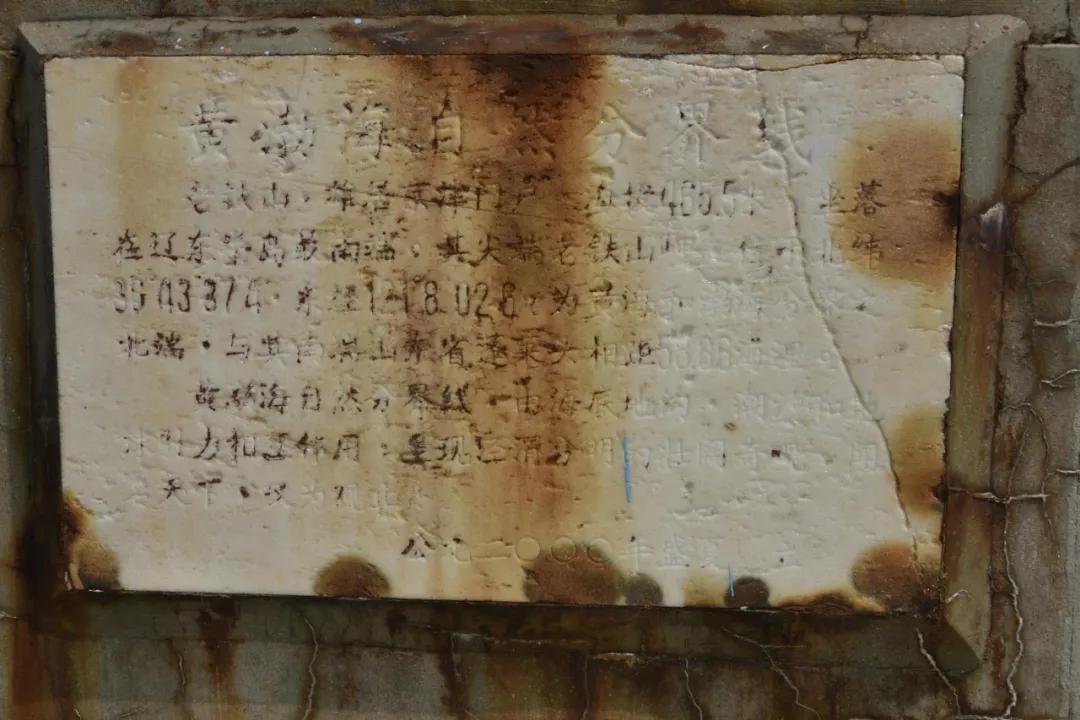 黄渤海自然分界线
老铁山，雄居京津门户，海拔465.5米，坐落
在辽东半岛最南端。其尖端老铁山岬，位于北纬
38 43 37 4，东经121 8 02 8，为黄海和渤海分界之
北端，与其南端山东省蓬莱头相距
黄渤海自然分界线，由海底地沟，潮汐和地
球引力相互作用，呈现泾渭分明的壮阔奇观，闻
名天下，叹为观止
公元二〇〇〇年盛夏 立